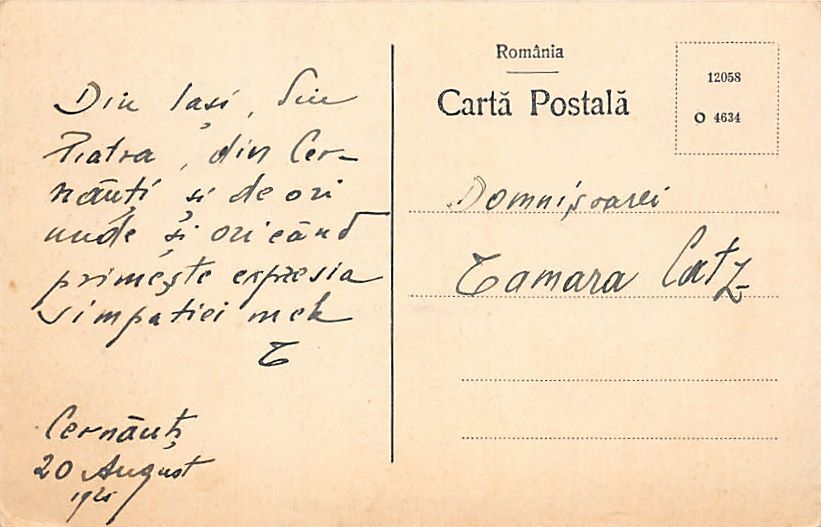 Din Iași, din
Piatra, din Cer-
năuți și de ori
unde și oricând
primește expresia
simpatiei mele
T
Cernăuți
20 August
România
Cartă Postală
12058
O 4634
Domnișoarei
Tamara Catz